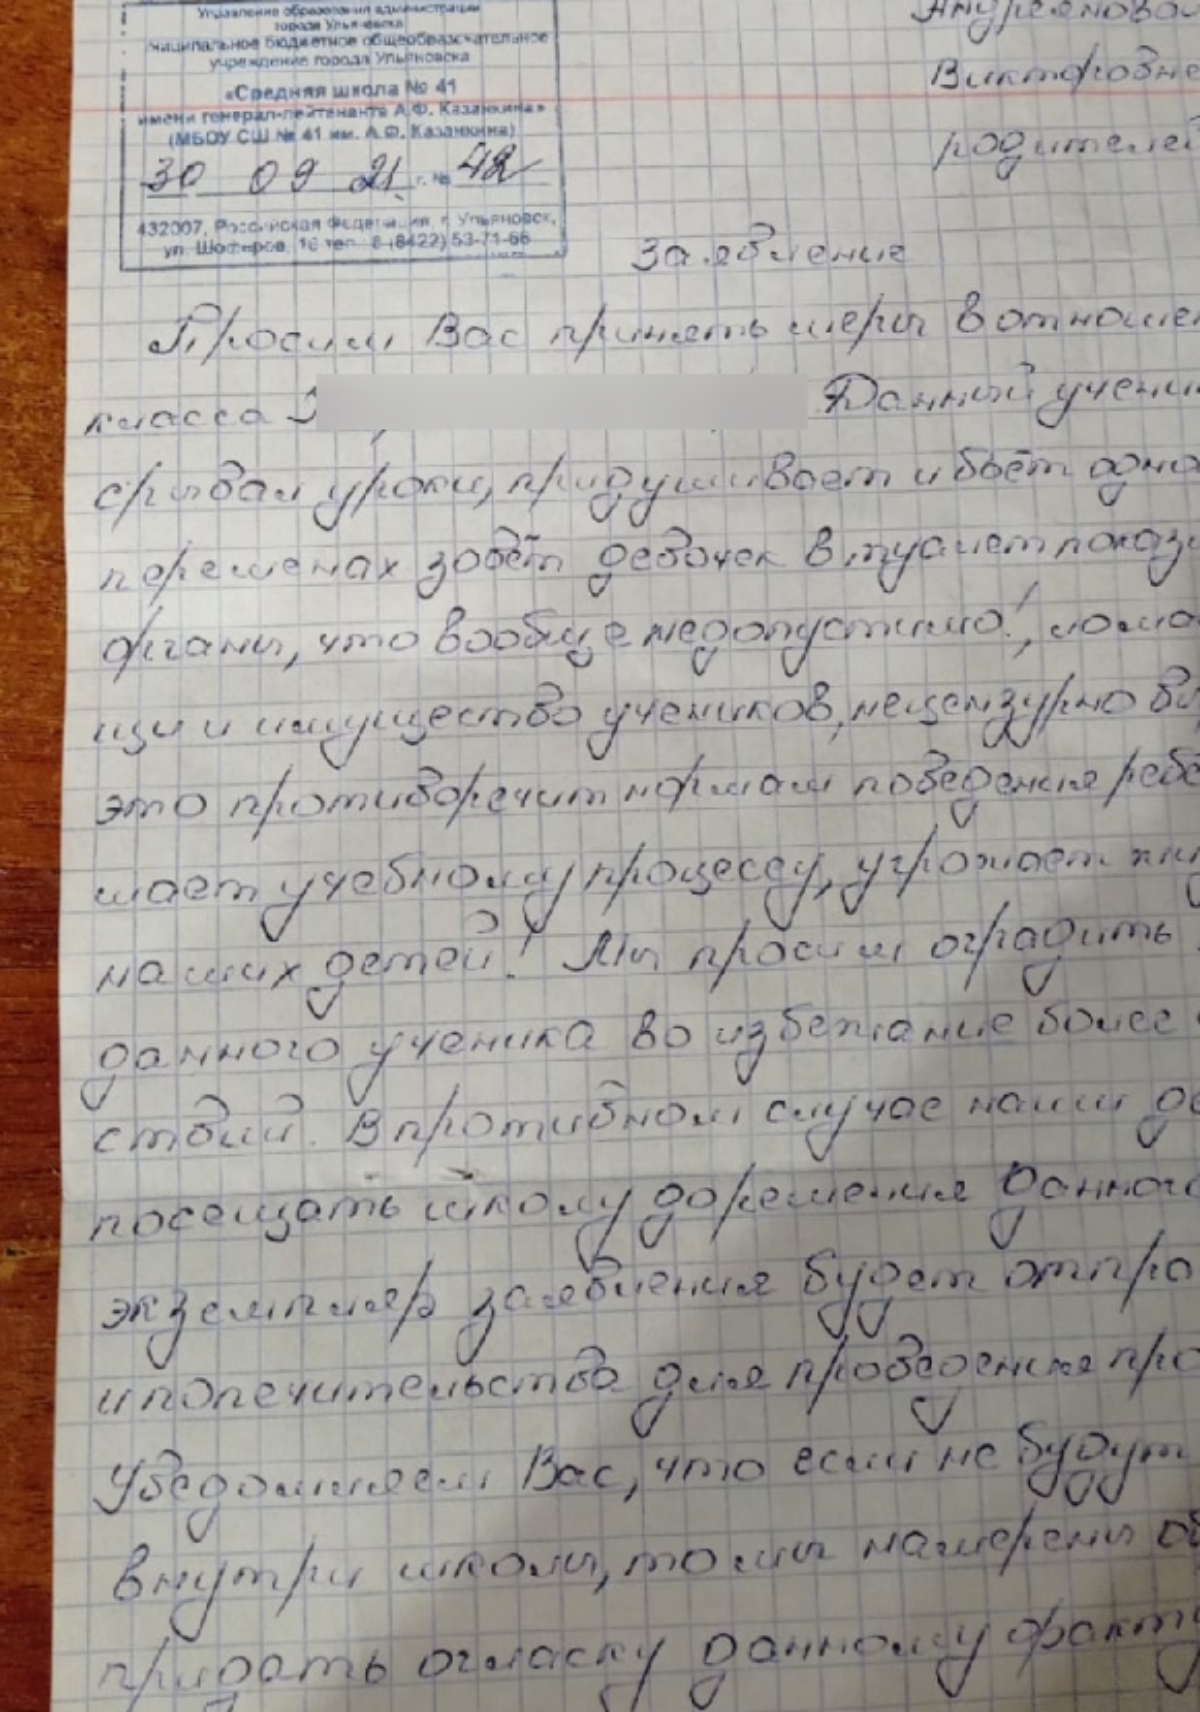 Управление образования администрации
города Ульяновска
муниципальное бюджетное общеобразовательное
учреждение города Ульяновска
«Средняя школа № 41
имени генерал-лейтенанта А.Ф. Казанкина»
(МБОУ СШ № 41 им. А.Ф. Казанкина)
30 09 21 г. № 42
432007, Российская Федерация, г. Ульяновск,
ул. Шоферов, 16 тел. 8 (8422) 53-71-66
Викторовне
родителей
Заявление
Просим Вас принять меры в отношен
класса Данный учени
срывал уроки, придушивает и бьёт одно
переменах зовёт девочек в туалет показ
органы, что вообще недопустимо!, лома
щи и имущество учеников, нецензурно вы
это противоречит нормам поведения реб
шает учебному процессу, угрожает жи
наших детей! Мы просим оградить
данного ученика во избежание более
ствий. В противном случае наши де
посещать школу до решения данного
экземпляр заявления будет отпра
и попечительства для проведения про
Уведомляем Вас, что если не будут
внутри школы, то мы намерены об
придать огласку данному факту